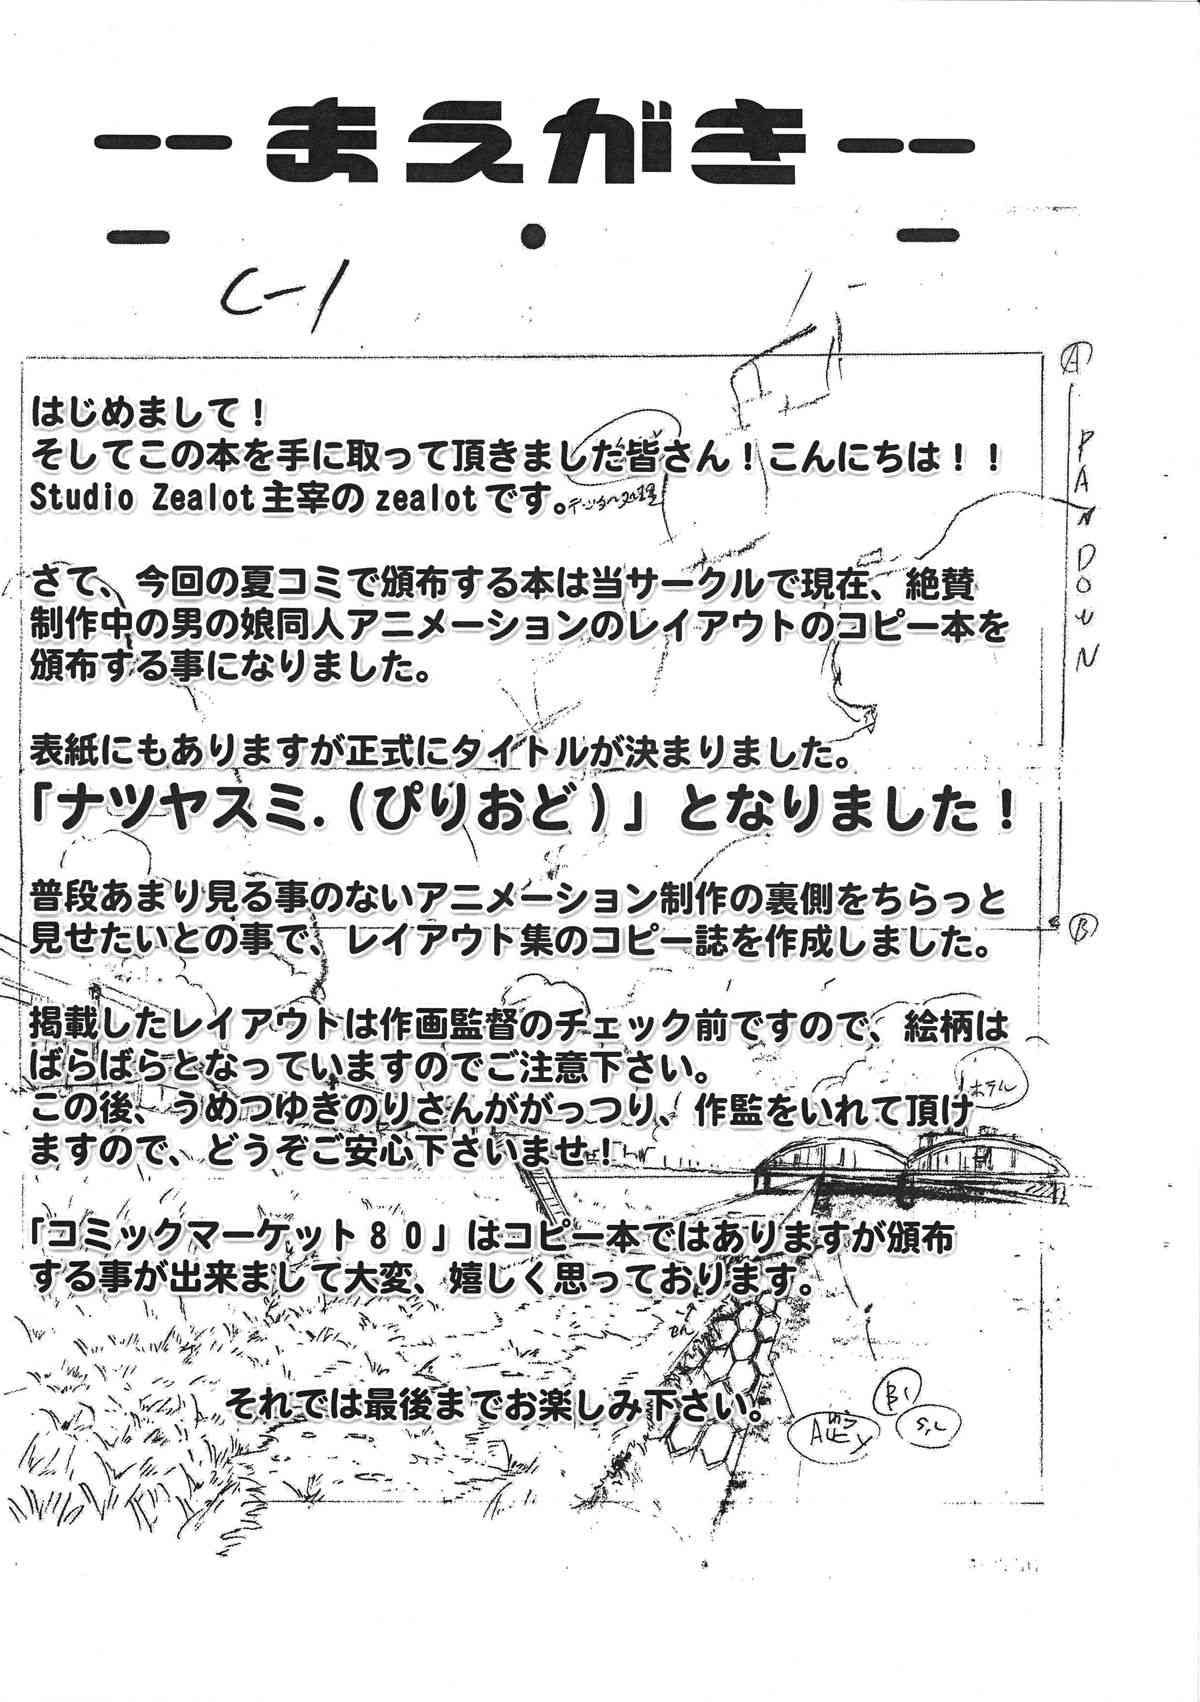 --まえがき--
- ・ -
C-1
A
PAN DOWN
はじめまして！
そしてこの本を手に取って頂きました皆さん！こんにちは！！
Studio Zealot主宰のzealotです。
さて、今回の夏コミで頒布する本は当サークルで現在、絶賛
制作中の男の娘同人アニメーションのレイアウトのコピー本を
頒布する事になりました。
表紙にもありますが正式にタイトルが決まりました。
「ナツヤスミ.(ぴりおど)」となりました！
普段あまり見る事のないアニメーション制作の裏側をちらっと
見せたいとの事で、レイアウト集のコピー誌を作成しました。
B
掲載したレイアウトは作画監督のチェック前ですので、絵柄は
ばらばらとなっていますのでご注意下さい。
ホテル
この後、うめつゆきのりさんががっつり、作監をいれて頂け
ますので、どうぞご安心下さいませ！
「コミックマーケット８０」はコピー本ではありますが頒布
する事が出来まして大変、嬉しく思っております。
それでは最後までお楽しみ下さい。